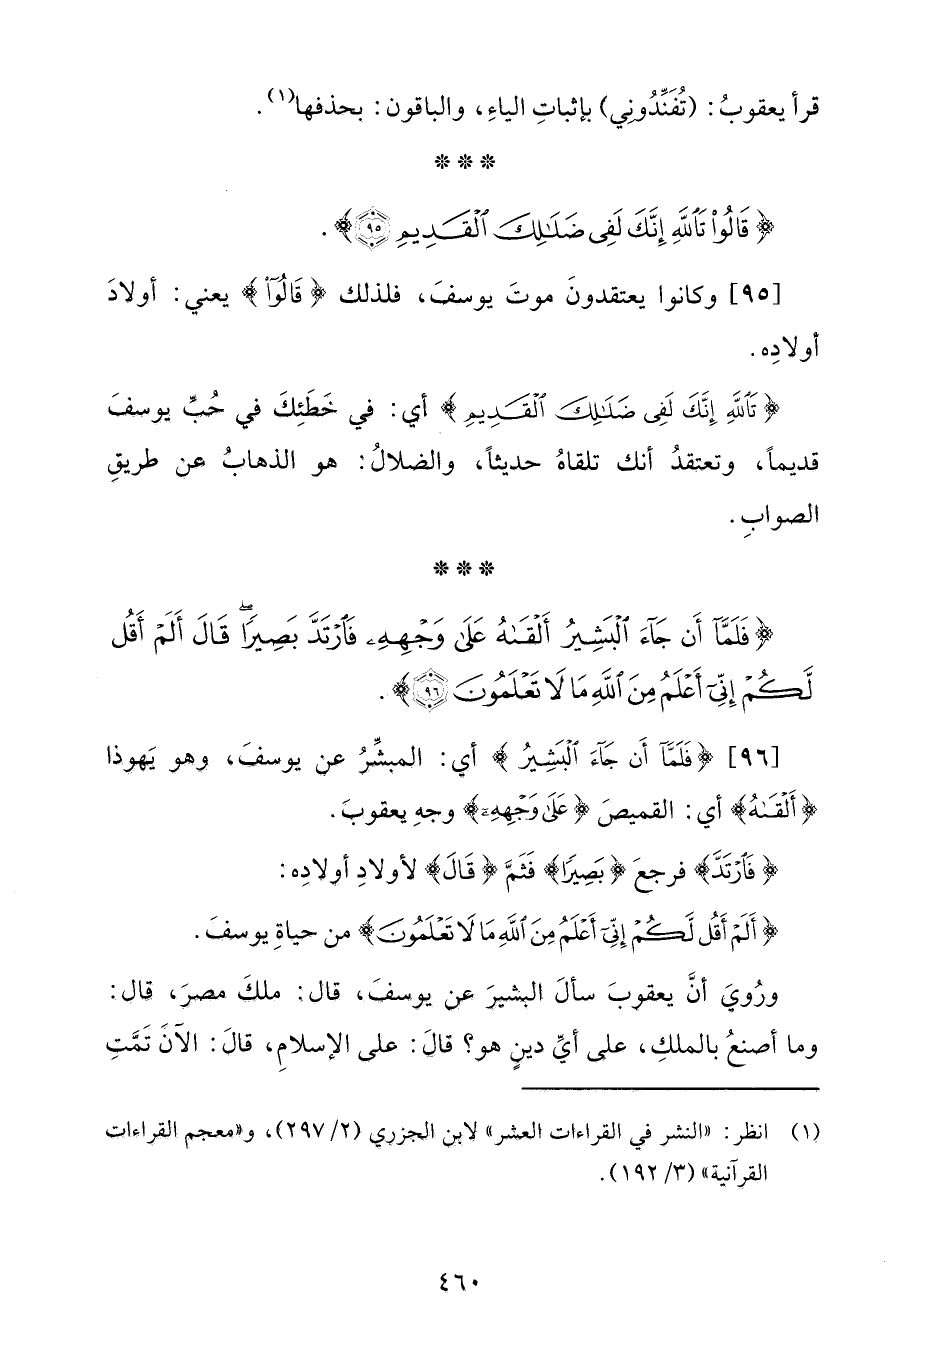 قرأ يعقوبُ: (تُفَنِّدُونِي) بإثباتِ الياءِ، والباقون: بحذفها(١).
***
﴿ قَالُوا۟ تَٱللَّهِ إِنَّكَ لَفِى ضَلَـٰلِكَ ٱلْقَدِيمِ ٩٥ ﴾.
[٩٥] وكانوا يعتقدونَ موتَ يوسفَ، فلذلك ﴿ قَالُوٓا۟ ﴾ يعني: أولادَ
أولادِه.
﴿ تَٱللَّهِ إِنَّكَ لَفِى ضَلَـٰلِكَ ٱلْقَدِيمِ ﴾ أي: في خَطَئِكَ في حُبِّ يوسفَ
قديماً، وتعتقدُ أنك تلقاهُ حديثاً، والضلالُ: هو الذهابُ عن طريقِ
الصوابِ.
***
﴿ فَلَمَّآ أَن جَآءَ ٱلْبَشِيرُ أَلْقَىٰهُ عَلَىٰ وَجْهِهِۦ فَٱرْتَدَّ بَصِيرًا ۖ قَالَ أَلَمْ أَقُل
لَّكُمْ إِنِّىٓ أَعْلَمُ مِنَ ٱللَّهِ مَا لَا تَعْلَمُونَ ٩٦ ﴾.
[٩٦] ﴿ فَلَمَّآ أَن جَآءَ ٱلْبَشِيرُ ﴾ أي: المبشِّرُ عن يوسفَ، وهو يَهوذا
﴿ أَلْقَىٰهُ ﴾ أي: القميصَ ﴿ عَلَىٰ وَجْهِهِۦ ﴾ وجهِ يعقوبَ.
﴿ فَٱرْتَدَّ ﴾ فرجعَ ﴿ بَصِيرًا ﴾ فَثَمَّ ﴿ قَالَ ﴾ لأولادِ أولادِه:
﴿ أَلَمْ أَقُل لَّكُمْ إِنِّىٓ أَعْلَمُ مِنَ ٱللَّهِ مَا لَا تَعْلَمُونَ ﴾ من حياةِ يوسفَ.
ورُويَ أنَّ يعقوبَ سألَ البشيرَ عن يوسفَ، قال: ملكَ مصرَ، قال:
وما أصنعُ بالملكِ، على أيِّ دينٍ هو؟ قالَ: على الإسلامِ، قالَ: الآنَ تَمَّتِ
(١) انظر: «النشر في القراءات العشر» لابن الجزري (٢/ ٢٩٧)، و«معجم القراءات
القرآنية» (٣/ ١٩٢).
٤٦٠